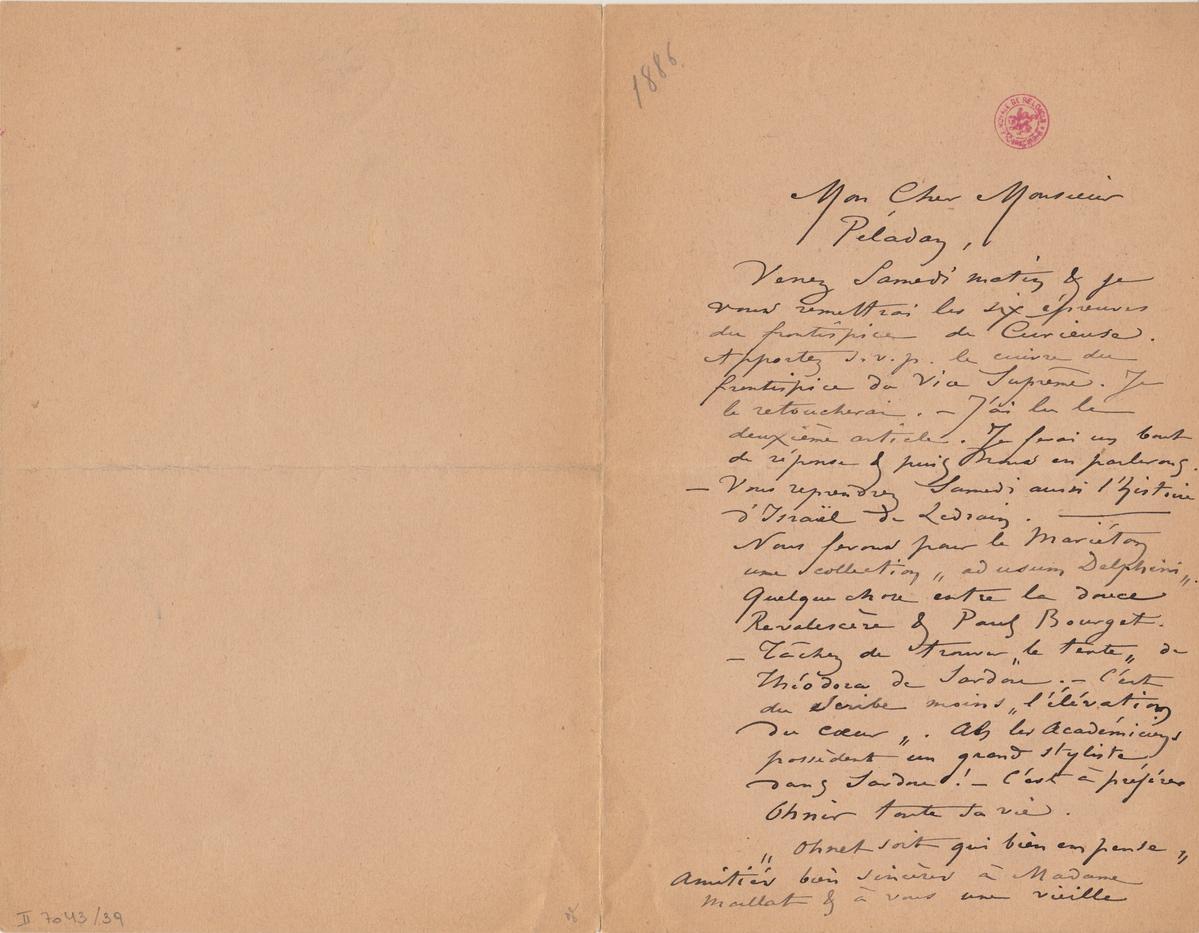 1886.
Mon Cher Monsieur
Péladan,
Venez Samedi matin & je
vous remettrai les six épreuves
du frontispice de Curieuse.
Apportez s.v.p. le cuivre du
frontispice du Vice Suprême. Je
le retoucherai. — J'ai lu le
deuxième article. Je ferai un bout
de réponse & puis nous en parlerons.
— Vous reprendrez Samedi aussi l'Histoire
d'Israël de Ledrain. —
Nous ferons pour le Mariéton
une collection „ ad usum Delphini „.
Quelque chose entre la douce
Revalescère & Paul Bourget.
— Tâchez de trouver „ le texte „ de
Théodora de Sardou. — C'est
du Scribe moins „ l'élévation
du cœur „. Ah les Académiciens
possèdent un grand styliste
dans Sardou ! — C'est à préférer
Ohnet toute sa vie.
„ Ohnet soit qui bien en pense „
Amitiés bien sincères à Madame
Maillat & à vous une vieille
II 7043/39